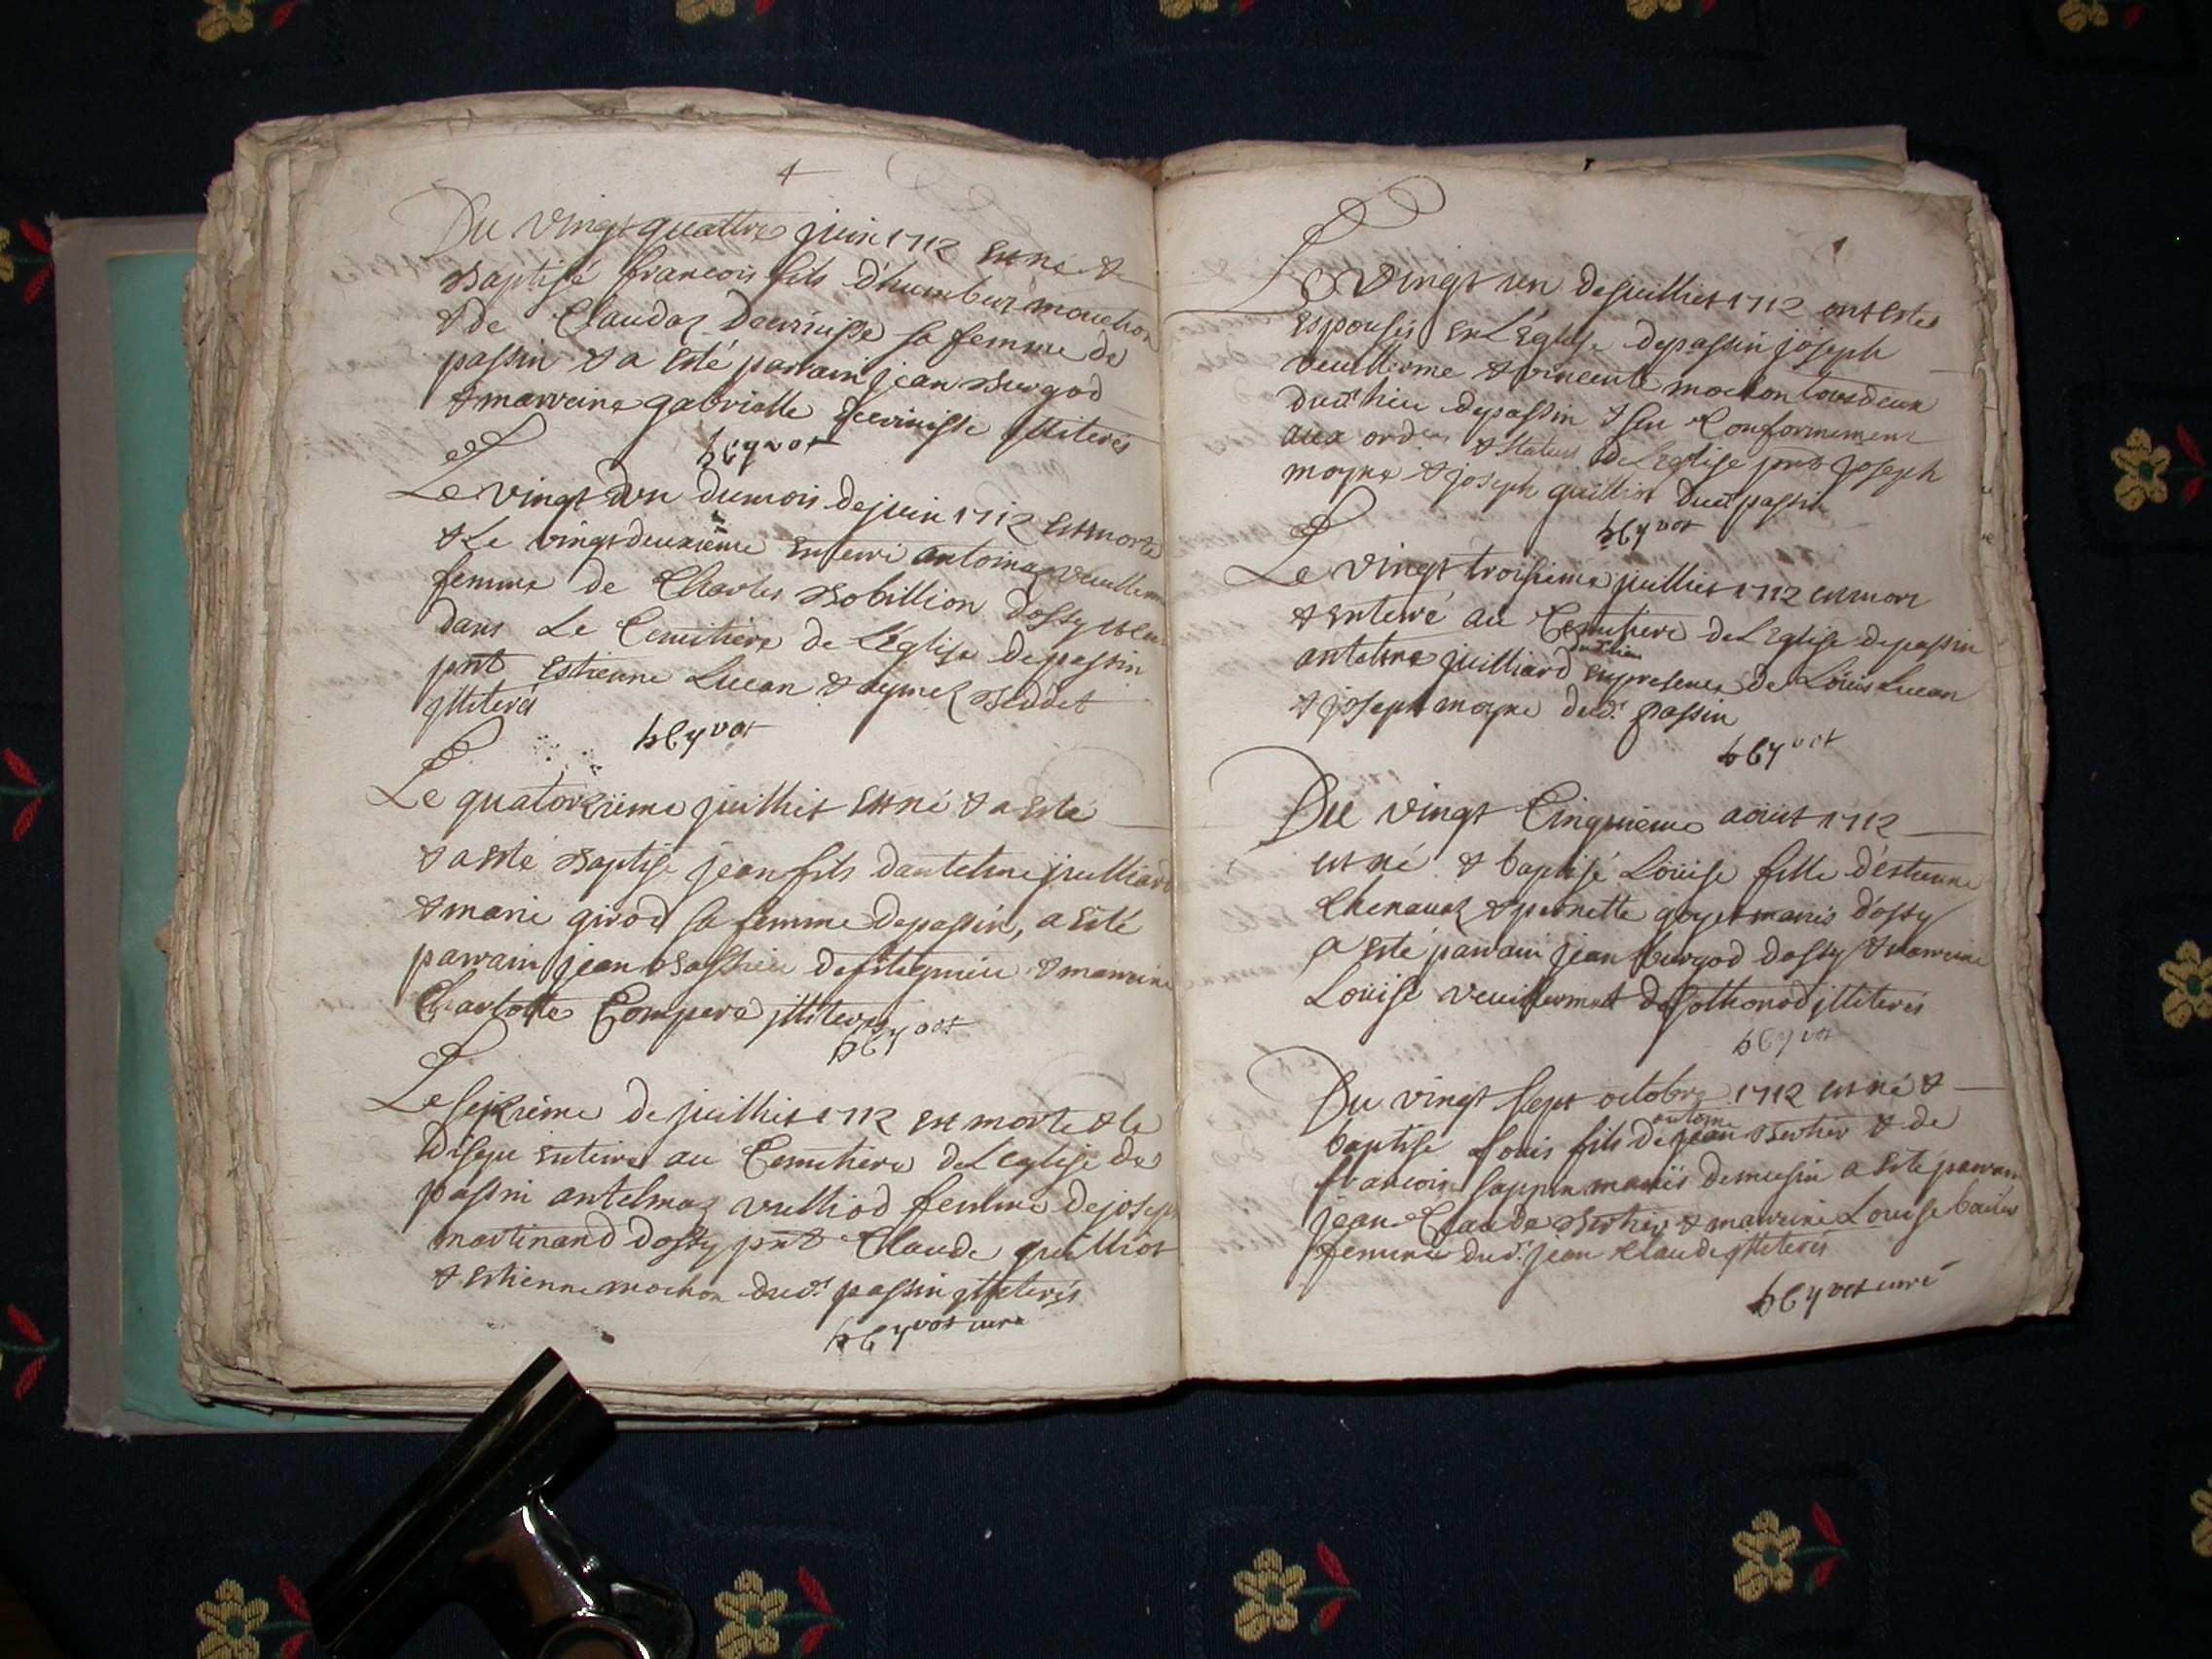 4
Du vingt quattre juin 1712 est né &
Baptisé francois fils d'humbert mouchon
& de Claudaz Decrinisse sa femme de
passin & a esté parrain jean Burgod
& marreine gabrielle decrinisse illiterés
beyvot
Le vingt un du mois de juin 1712 est morte
& Le vingt deuxième enterré antoinaz
femme de Charles Bobillion dossy
dans Le Cemitiere de L'Eglise de passin
pnt Estienne Lucan & aymez Beddet
illiterés
beyvot
Le quatorzième juilliet est né & a esté
& a esté Baptisé jean fils dantelme juilliard
& marie girod sa femme de passin, a esté
parrain jean & marreine
Charlotte Compere illiterés
beyvot
Le seizième de juilliet 1712 est morte & le
disepu enterré au Cemitiere de L'eglise de
passin antelmaz vulliod femme de joseph
martinand dossy pnt Claude guilliot
& estienne mochon dud. passin illiterés
beyvot curé
Le vingt un de juilliet 1712 ont estes
espousés en L'Eglise de passin joseph
veuillerme & vincente mochon tous deux
dud. lieu de passin & ce Conformement
aux ordres & statuts de L'eglise pnt joseph
moyne & joseph guilliot dud. passin
beyvot
Le vingt troisième juilliet 1712 est mort
& enterré au Cemitiere de L'Eglise de passin
dud. lieu
antelme juilliard en presence de Loüis Lucan
& joseph moyne dud. passin
beyvot
Du vingt Cinquième aoüst 1712
est né & baptisé Loüise fille d'estienne
Chenavaz & pernette goyet mariés d'ossy
a esté parrain jean burgod dossy & marreine
Loüise veuillermet de sothonod illiterés
beyvot
Du vingt sept octobre 1712 est né &
antoine
baptisé Louis fils de jean Berthier & de
francoise sappin mariés de musin a esté parrain
jean Claude Berthier & marreine Louise
femme dud. jean Claude illiterés
beyvot curé